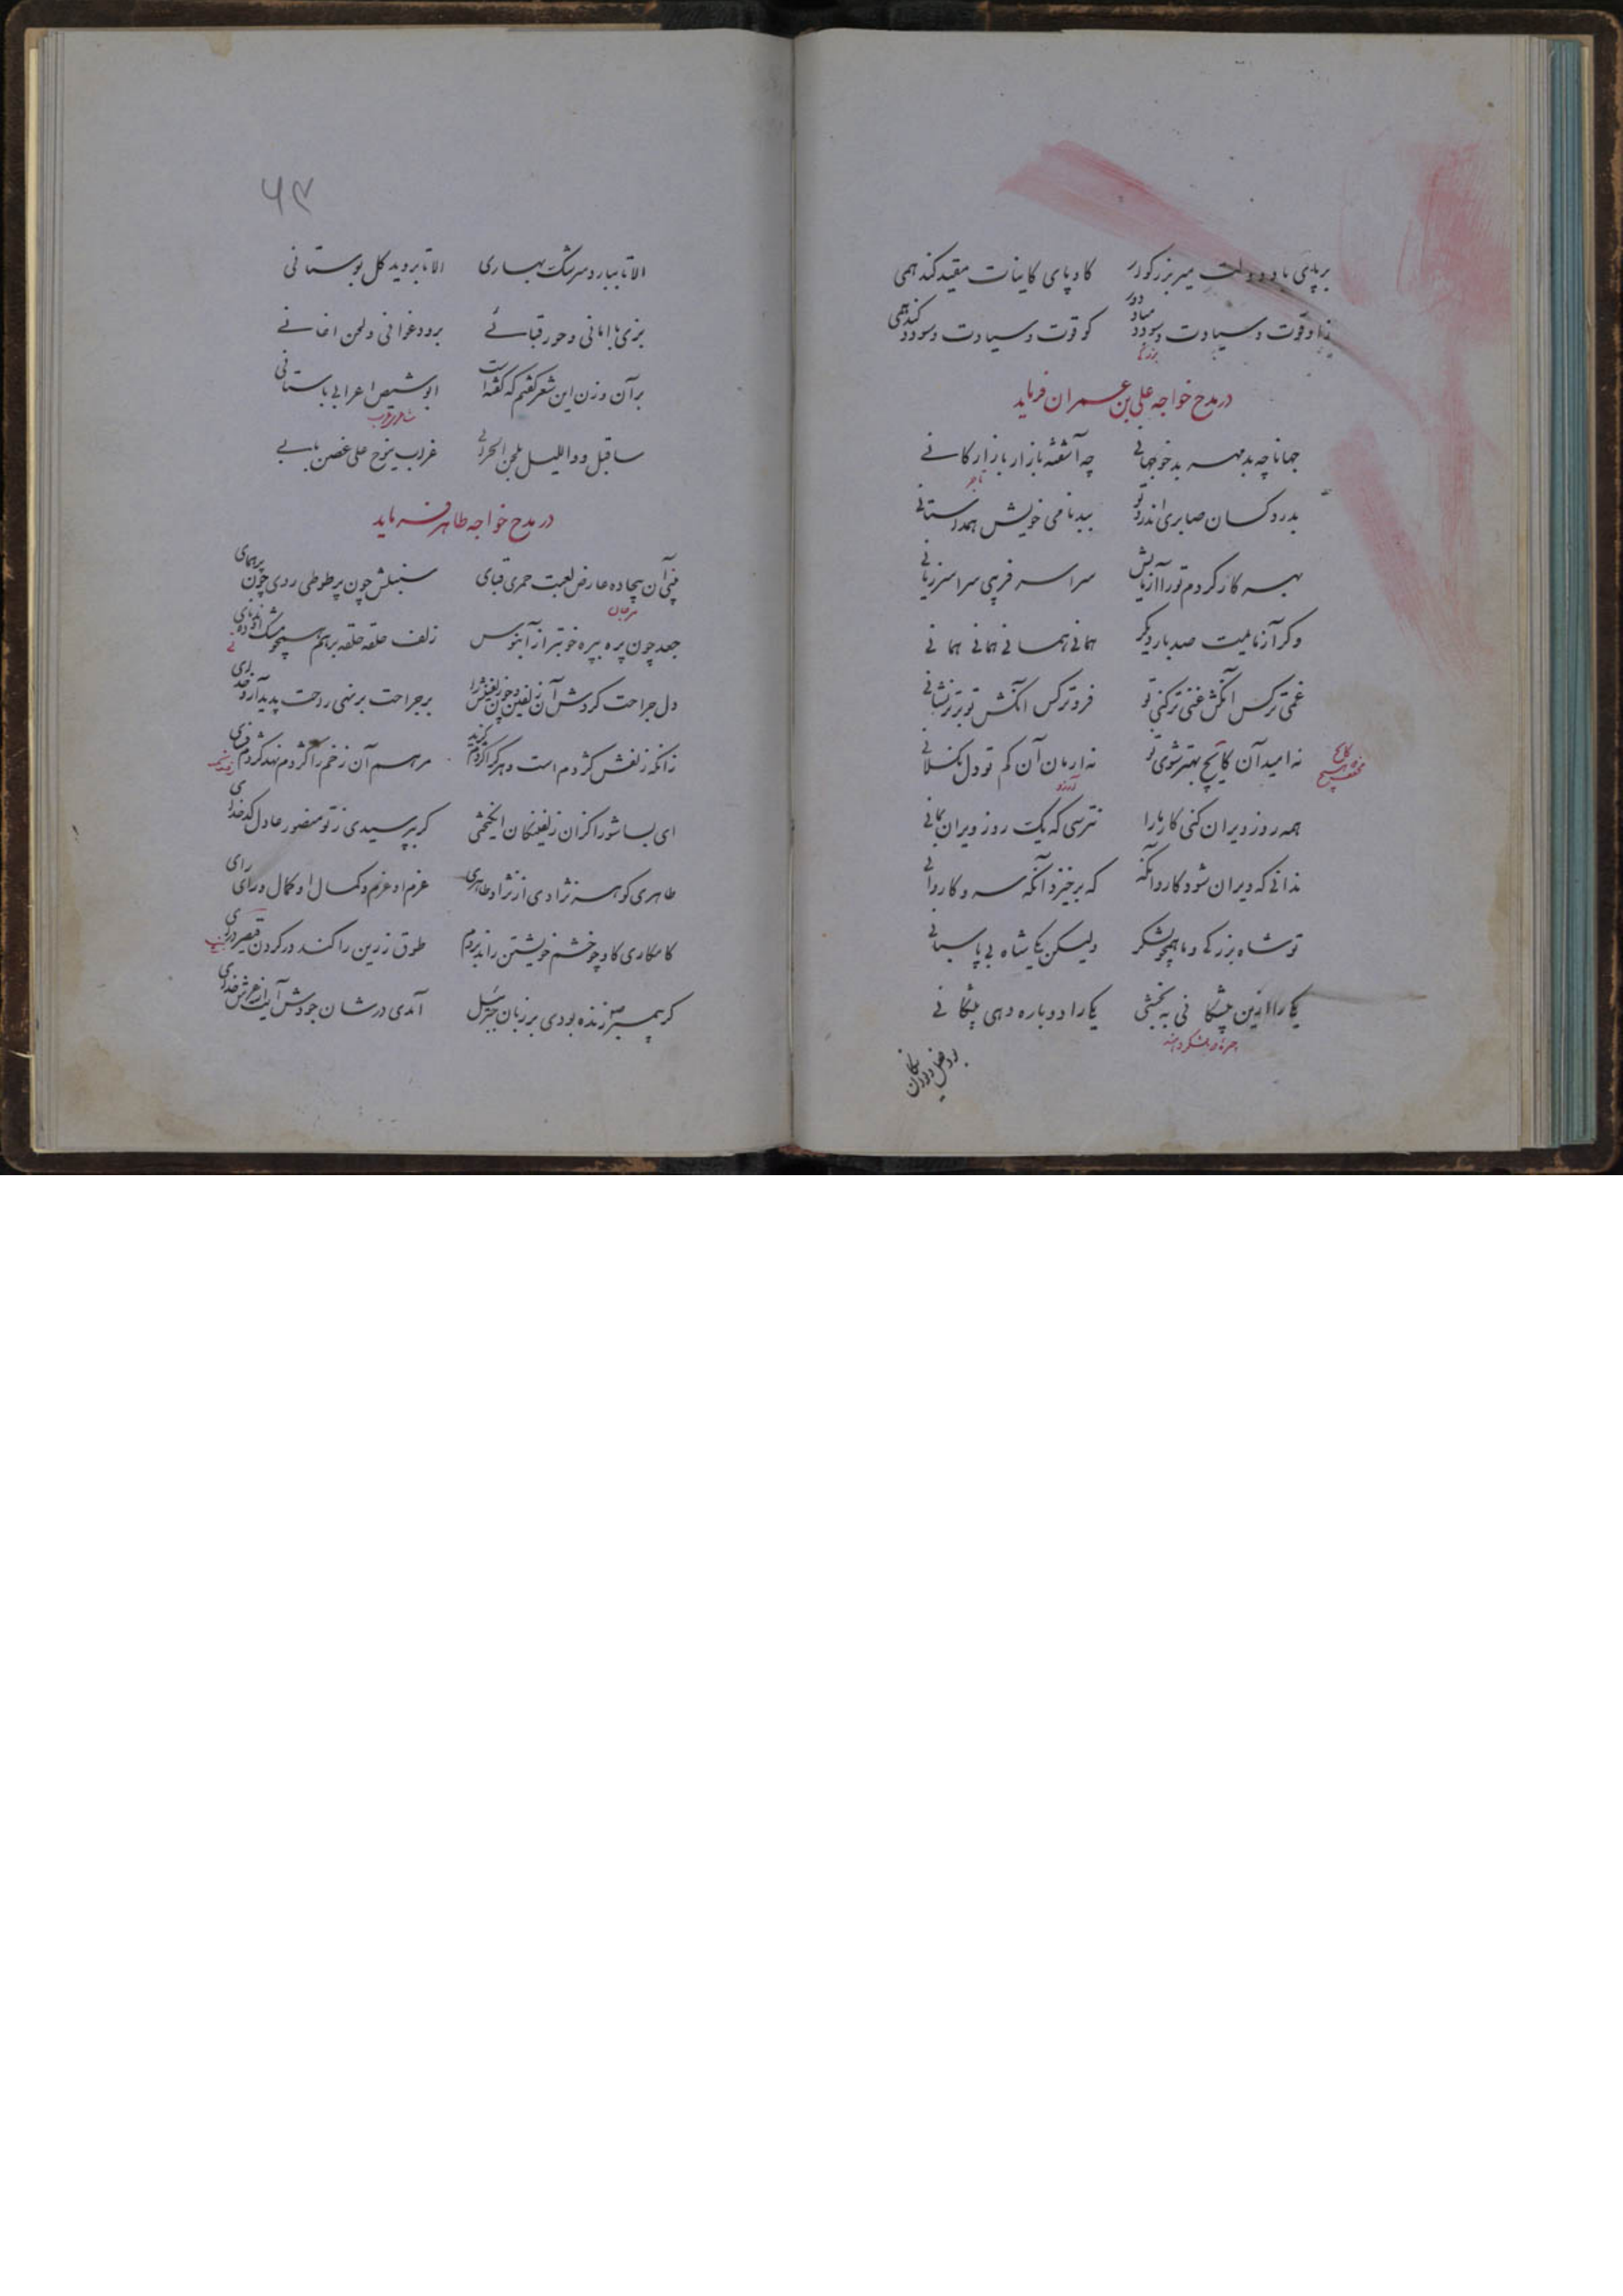 بر پای باد دولت میر بزرگوار کاو پای کاینات مقید کند همی
زاد قوت و سیادت و سودد کو قوت و سیادت و سودد کند همی
در مدح خواجه علی بن عمران فرماید
جهانا چه بدمهر و بدخو جهانی چه آشفته بازار بازارکانی
تاجر
بدرد کسان صابری اندرو تو ببدنامی خویش همداستانی
بهر کار کردم تو را آزمایش سراسر فریبی سراسر زیانی
وکر آزمایمت صد بار دیکر همانی همانی همانی همانی
غمی‌ترکس آنکش غنی‌ترکنی تو فروترکس آنکش تو برترنشانی
نه امید آن کایچ بهتر شوی تو نه ارمان آن کم تو دل نکسلانی
آرزو
کایچ مخفف که هیچ
همه روز ویران کنی کار ما را نترسی که یک روز ویران بمانی
ندانی که ویران شود کاروانکه که برخیزد آنکه سر کاروانی
تو شاه بزرکی و ما همچو لشکر ولیکن یکی شاه بی پاسبانی
یکی را ازین بیشکانی نبخشی یکی را دوباره دهی بیشکانی
۶۳
الا تا ببارد سرشک بهاری الا تا بروید کل بوستانی
بزی با امانی و حور قبائی برود غوانی و لحن اغانی
برآن وزن این شعر کفتم که کفته است ابوشیص اعرابی باستانی
شاعر عرب
ساقبل و واللیل ملقی الجران غراب ینوح علی غصن بانی
در مدح خواجه طاهر فرماید
بینی آن بیجاده عارض لعبت حمری قبای سنبلش چون پر طوطی روی چون پر همای
مرجان
جعد چون پره بپره خوبتر از آبنوس زلف حلقه حلقه برهم همچو مشک اندوده نای
دل جراحت کردش آن زلفین و چون زلفینش را بر جراحت برنهی راحت پدید آرد خدای
زانکه زلفش کژدم است و هرکرا کژدم کزید مرهم آن زخم را کژدم نهد کژدم فسای
ای بسا شورا کزان زلفینکان انکیختی کر نپرسیدی ز تو منصور عادل کدخدای
طاهری کوهر نژادی از نژاد طاهری عزم او عزم و کمال او کمال و رای رای
کامکاری کاو چو خشم خویشتن راند بروم طوق زرین را کند در کردن قیصر درای
کر پیمبر زنده بودی بر زبان جبرئیل آمدی در شان جودش آیت از عرش خدای